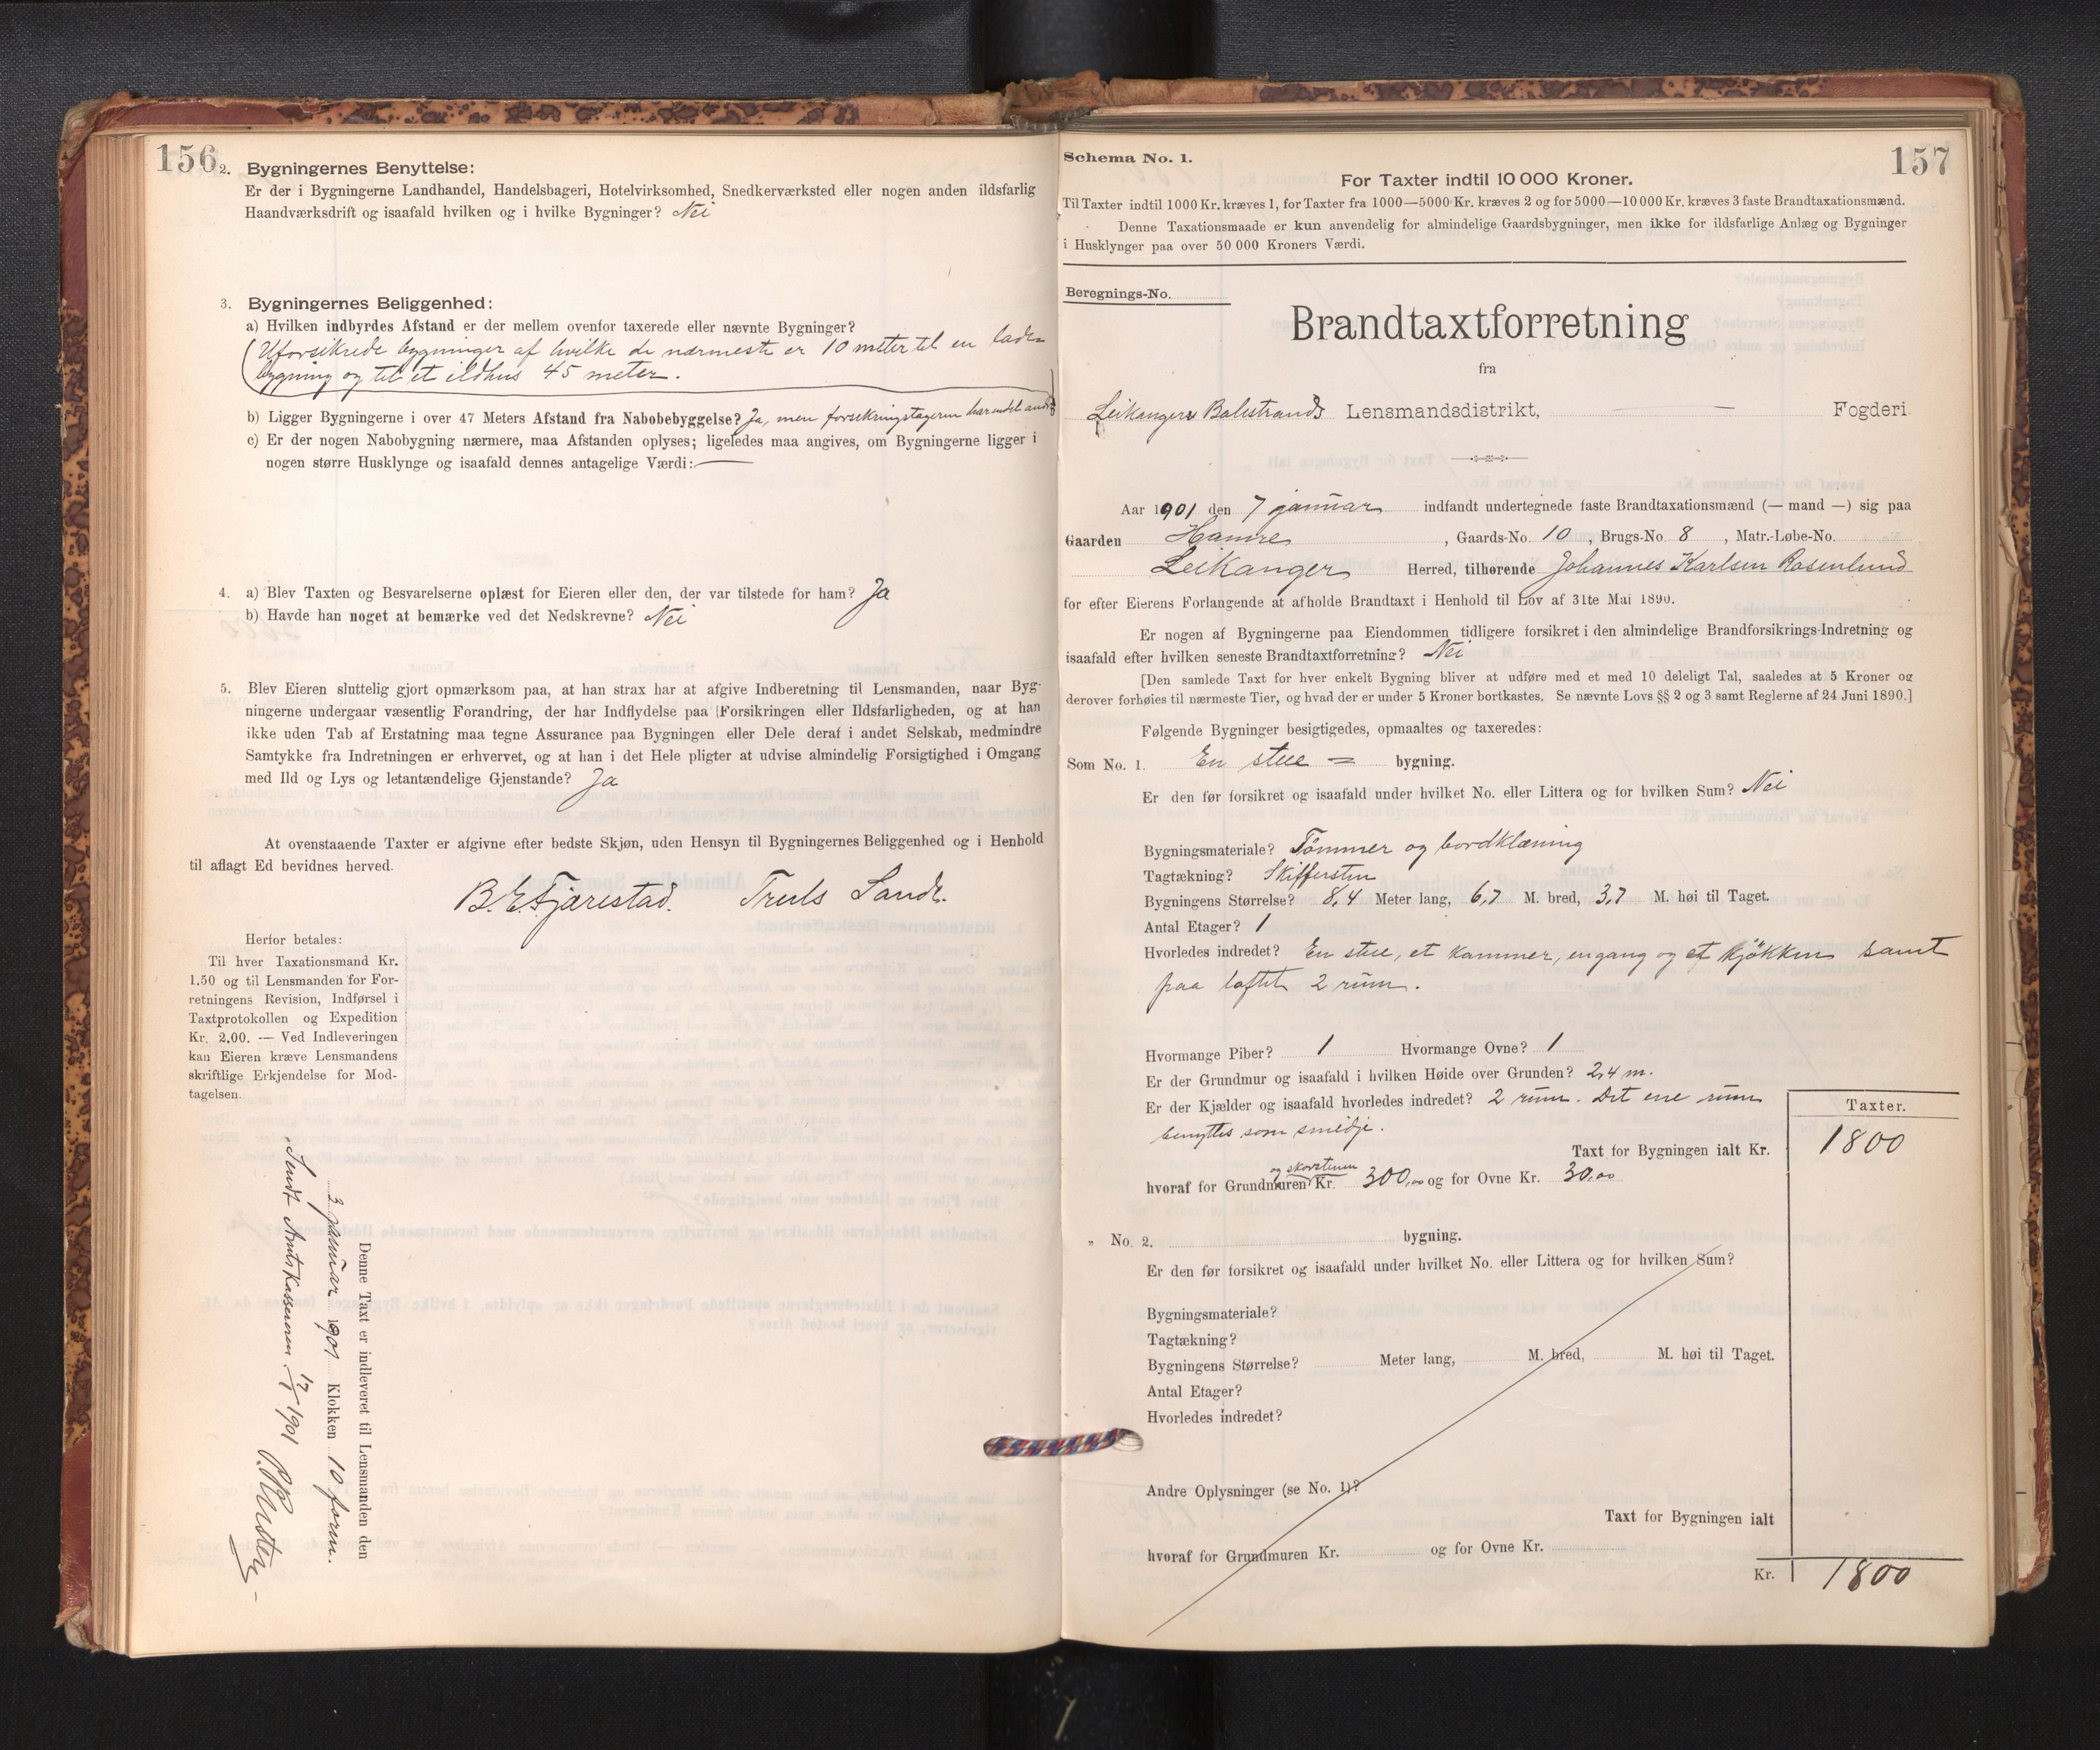 156
2. Bygningernes Benyttelse:
Er der i Bygningerne Landhandel, Handelsbageri, Hotelvirksomhed, Snedkerværksted eller nogen anden ildsfarlig
Haandværksdrift og isaafald hvilken og i hvilke Bygninger? Nei
3. Bygningernes Beliggenhed:
a) Hvilken indbyrdes Afstand er der mellem ovenfor taxerede eller nævnte Bygninger?
Uforsikrede bygninger af hvilke de nærmeste er 10 meter til en lade-
bygning og til et ildhus 45 meter.
b) Ligger Bygningerne i over 47 Meters Afstand fra Nabobebyggelse? Ja, men forsikringstageren har
c) Er der nogen Nabobygning nærmere, maa Afstanden oplyses; ligeledes maa angives, om Bygningerne ligger i
nogen større Husklynge og isaafald dennes antagelige Værdi: —
4. a) Blev Taxten og Besvarelserne oplæst for Eieren eller den, der var tilstede for ham? Ja
b) Havde han noget at bemærke ved det Nedskrevne? Nei
5. Blev Eieren sluttelig gjort opmærksom paa, at han strax har at afgive Indberetning til Lensmanden, naar Byg-
ningerne undergaar væsentlig Forandring, der har Indflydelse paa Forsikringen eller Ildsfarligheden, og at han
ikke uden Tab af Erstatning maa tegne Assurance paa Bygningen eller Dele deraf i andet Selskab, medmindre
Samtykke fra Indretningen er erhvervet, og at han i det Hele pligter at udvise almindelig Forsigtighed i Omgang
med Ild og Lys og letantændelige Gjenstande? Ja
At ovenstaaende Taxter er afgivne efter bedste Skjøn, uden Hensyn til Bygningernes Beliggenhed og i Henhold
til aflagt Ed bevidnes herved.
B. E. Fjærestad. Truls Sande.
Herfor betales:
Til hver Taxationsmand Kr.
1.50 og til Lensmanden for For-
retningens Revision, Indførsel i
Taxtprotokollen og Expedition
Kr. 2.00. — Ved Indleveringen
kan Eieren kræve Lensmandens
skriftlige Erkjendelse for Mod-
tagelsen.
Denne Taxt er indleveret til Lensmanden den
januar 1901 Klokken 10 form.
Sendt Amtskasseren 17/1 1901
157
Schema No. 1.
For Taxter indtil 10 000 Kroner.
Til Taxter indtil 1000 Kr. kræves 1, for Taxter fra 1000—5000 Kr. kræves 2 og for 5000—10 000 Kr. kræves 3 faste Brandtaxationsmænd.
Denne Taxationsmaade er kun anvendelig for almindelige Gaardsbygninger, men ikke for ildsfarlige Anlæg og Bygninger
i Husklynger paa over 50 000 Kroners Værdi.
Beregnings-No.
Brandtaxtforretning
fra
Leikanger Balestrands Lensmandsdistrikt, — Fogderi
Aar 1901 den 7 januar indfandt undertegnede faste Brandtaxationsmænd (— mand —) sig paa
Gaarden Hamre, Gaards-No. 10, Brugs-No. 8, Matr.-Løbe-No.
Leikanger Herred, tilhørende Johannes Karlsen Rosenlund
for efter Eierens Forlangende at afholde Brandtaxt i Henhold til Lov af 31te Mai 1890.
Er nogen af Bygningerne paa Eiendommen tidligere forsikret i den almindelige Brandforsikrings-Indretning og
isaafald efter hvilken seneste Brandtaxtforretning? Nei
[Den samlede Taxt for hver enkelt Bygning bliver at udføre med et med 10 deleligt Tal, saaledes at 5 Kroner og
derover forhøies til nærmeste Tier, og hvad der er under 5 Kroner bortkastes. Se nævnte Lovs §§ 2 og 3 samt Reglerne af 24 Juni 1890.]
Følgende Bygninger besigtigedes, opmaaltes og taxeredes:
Som No. 1. En stue = bygning.
Er den før forsikret og isaafald under hvilket No. eller Littera og for hvilken Sum? Nei
Bygningsmateriale? Tømmer og bordklæning
Tagtækning? Skiffersten
Bygningens Størrelse? 8,4 Meter lang, 6,7 M. bred, 3,7 M. høi til Taget.
Antal Etager? 1
Hvorledes indredet? En stue, et kammer, en gang og et kjøkken samt
paa loftet 2 rum.
Hvormange Piber? 1 Hvormange Ovne? 1
Er der Grundmur og isaafald i hvilken Høide over Grunden? 2,4 m.
Er der Kjælder og isaafald hvorledes indredet? 2 rum. Det ene rum
benyttes som smidje.
Taxter.
Taxt for Bygningen ialt Kr. 1800
og skorstenen
hvoraf for Grundmuren Kr. 300,00 og for Ovne Kr. 30,00
„ No. 2. bygning.
Er den før forsikret og isaafald under hvilket No. eller Littera og for hvilken Sum?
Bygningsmateriale?
Tagtækning?
Bygningens Størrelse? Meter lang, M. bred, M. høi til Taget.
Antal Etager?
Hvorledes indredet?
Andre Oplysninger (se No. 1)?
Taxt for Bygningen ialt
hvoraf for Grundmuren Kr. og for Ovne Kr.
Kr. 1800